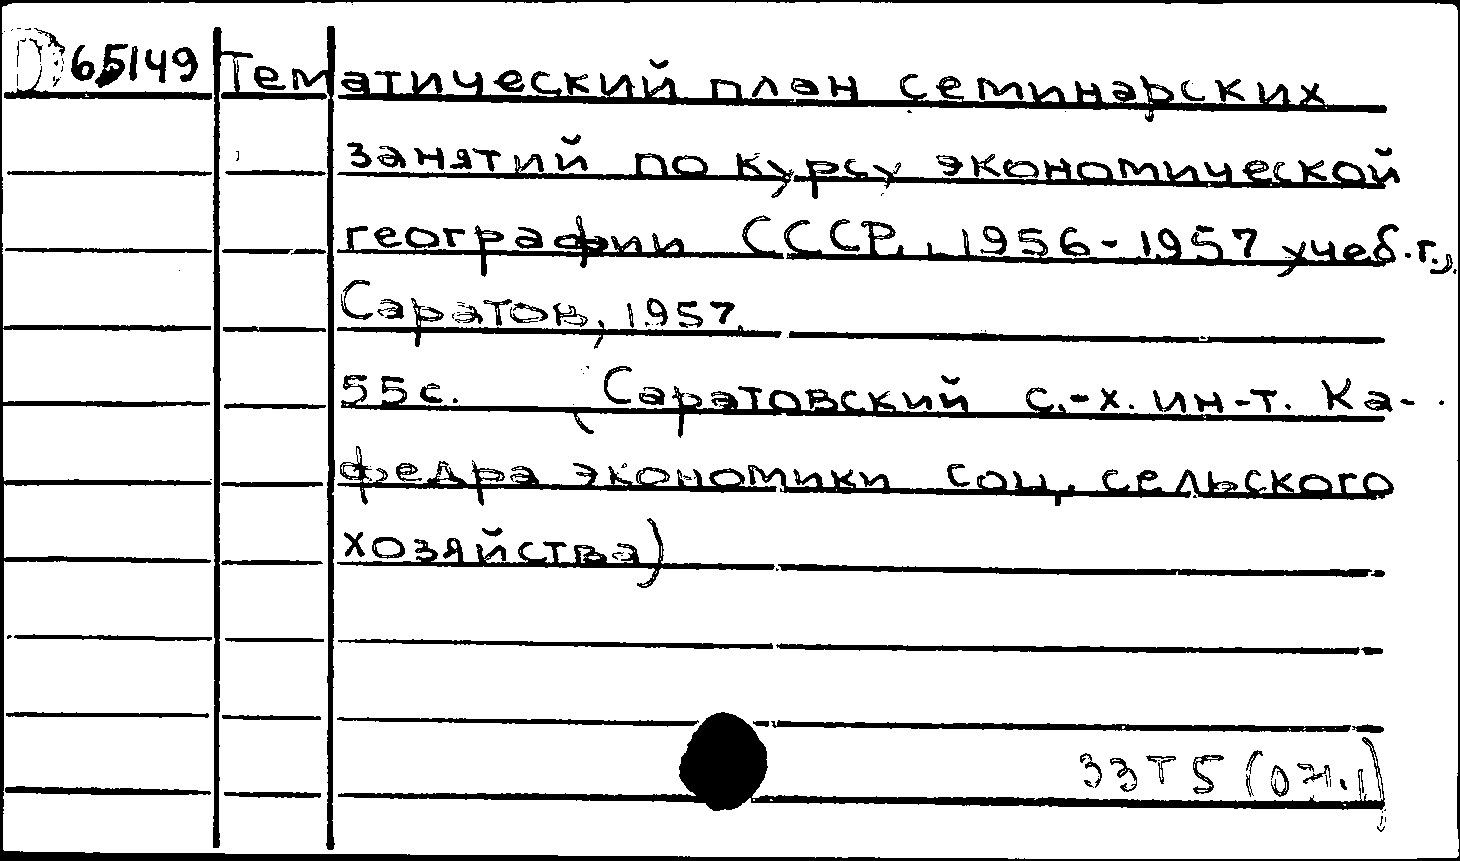 D 65149 Тематический план семинарских
занятий по курсу экономической
географии СССР, 1956-1957 учеб.г.,
Саратов, 1957.
55с. (Саратовский с.-х. ин-т. Ка-
федра экономики соц. сельского
хозяйства)
33Т5